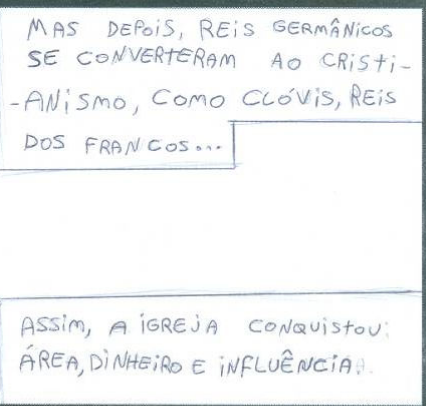 MAS DEPOIS, REIS GERMÂNICOS
SE CONVERTERAM AO CRISTI-
-ANISMO, COMO CLÓVIS, REIS
DOS FRANCOS...
ASSIM, A IGREJA CONQUISTOU:
ÁREA, DINHEIRO E INFLUÊNCIA.